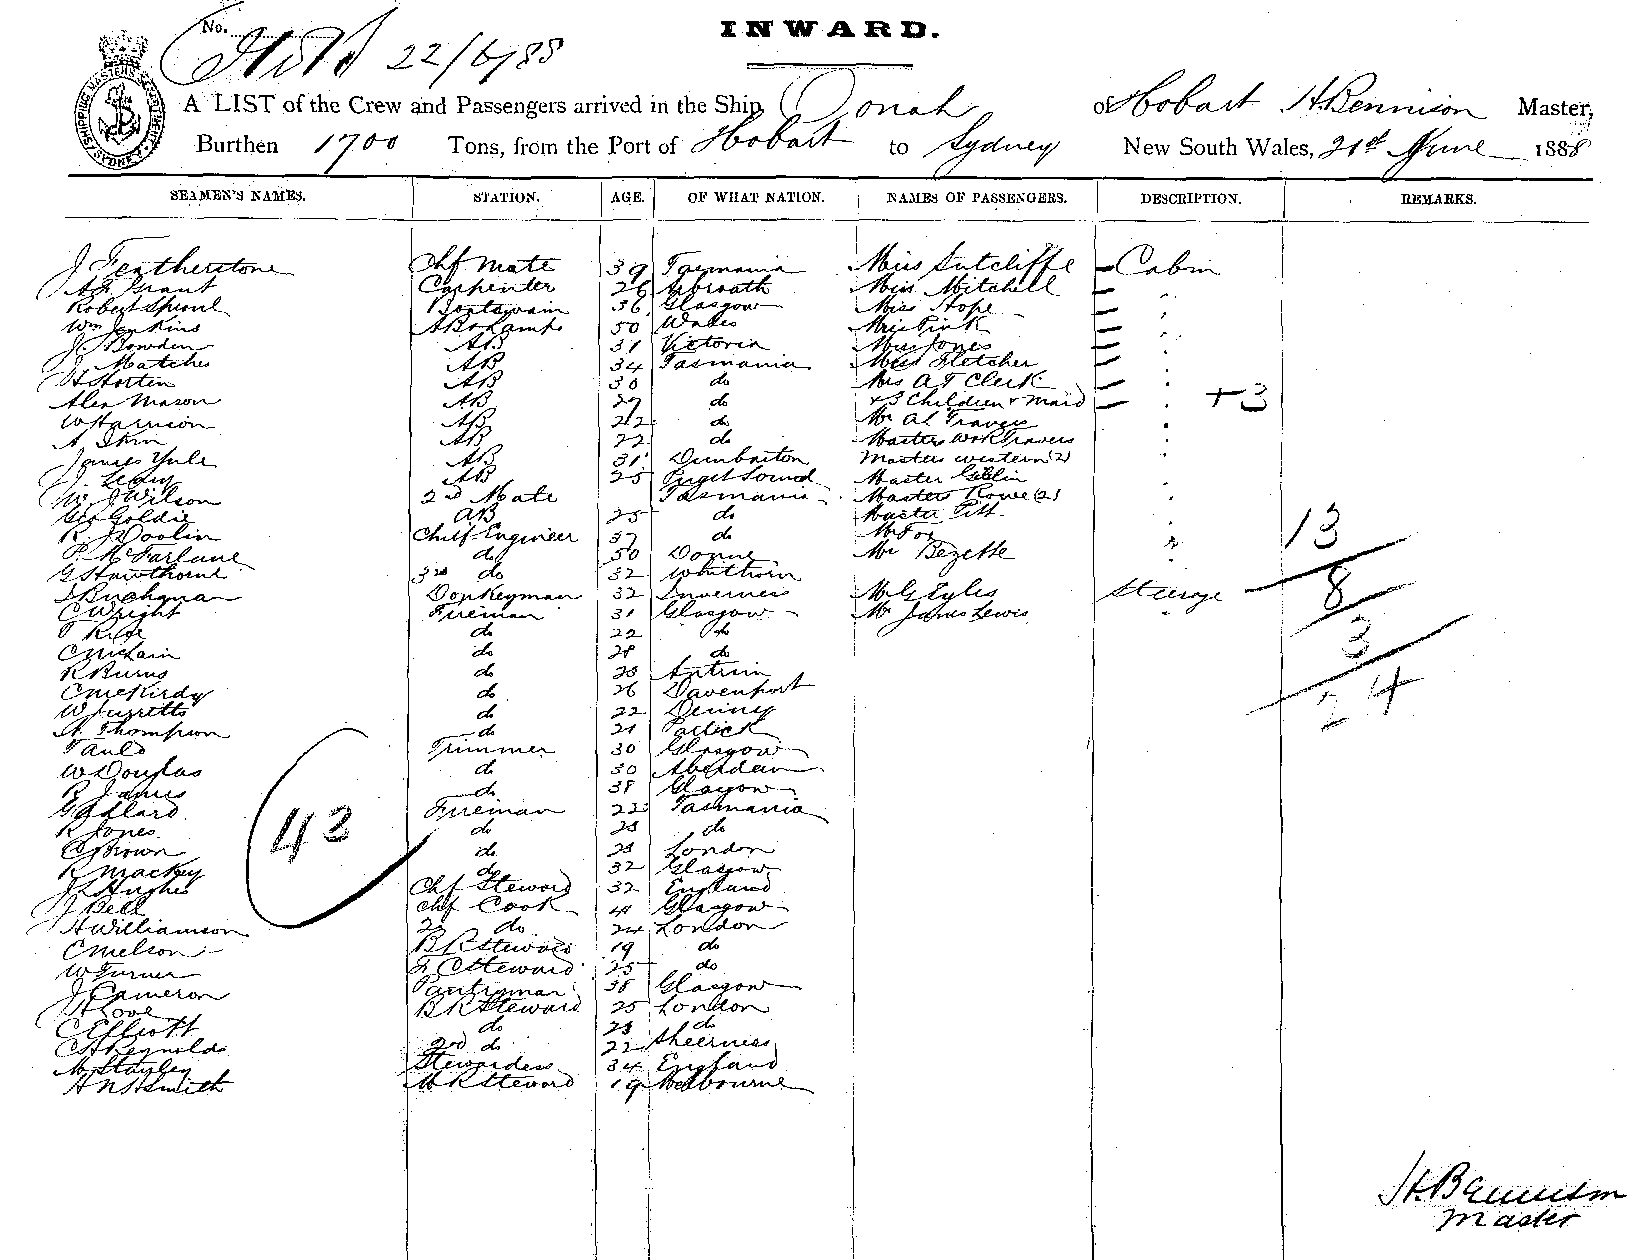 No.
22/6/88
INWARD.
SHIPPING MASTER'S DEPARTMENT SYDNEY
A LIST of the Crew and Passengers arrived in the Ship Oonah of Hobart H Bennison Master,
Burthen 1700 Tons, from the Port of Hobart to Sydney New South Wales, 21st June 1888
SEAMEN'S NAMES. STATION. AGE. OF WHAT NATION. NAMES OF PASSENGERS. DESCRIPTION. REMARKS.
J Featherstone Chf Mate 39 Tasmania Miss Sutcliffe Cabin
Grant Carpenter 26 Arbroath Miss Mitchell "
Robert Sproul Boatswain 36 Glasgow Miss Hope "
Wm Jenkins AB & Lamps 50 Wales Miss Pink "
J Bowden AB 31 Victoria Miss Jones "
J Matches AB 34 Tasmania Miss Fletcher "
H Hortin AB 30 do Mrs A T Clerk "
Alex Mason AB 29 do & 3 Children & Maid " +3
W Harrison AB 22 do Mr Al Travers "
A AB 22 do Masters W & R Travers "
James Yule AB 31 Dumbarton Masters Western (2) "
J. AB 25 Puget Sound Master Giblin
W J Wilson 2nd Mate Tasmania Masters Rowe (2) "
Geo Goldie AB 25 do Master Pitt "
R. Doolin Chief Engineer 37 do Mr Fox " 13
P. McFarlane do 50 Mr Bezette "
G Hawthorne 3rd do 32 Whithorn
Buchanan Donkeyman 32 Inverness Mr G Eyles Steerage 8
C Wright Fireman 31 Glasgow Mr James Lewis "
do 22 do 3
C McLain do 28 do
R Burns do 28 Antrim
C McKirdy do 26 Davenport 24
W do 22 Denny
A. Thompson do 21 Patrick
Auld Trimmer 30 Glasgow
W Douglas do 30 Aberdeen
R James do 38 Glasgow
G Fireman 22 Tasmania
R Jones do 23 do
43
C Brown do 23 London
R Mackey do 32 Glasgow
J Hughes Chf Steward 32 England
J Bell Chf Cook 41 Glasgow
H Williamson 2nd do 24 London
C Nielson B R Steward 19 do
W Turner F C Steward 25 do
J Cameron Pantryman 38 Glasgow
H Love B R Steward 25 London
C Elliott do 23 do
C H Reynolds 2nd do 22 Sheerness
M Stayley Stewardess 34 England
H N H Smith M R Steward 19 Melbourne
H. Bennison
Master